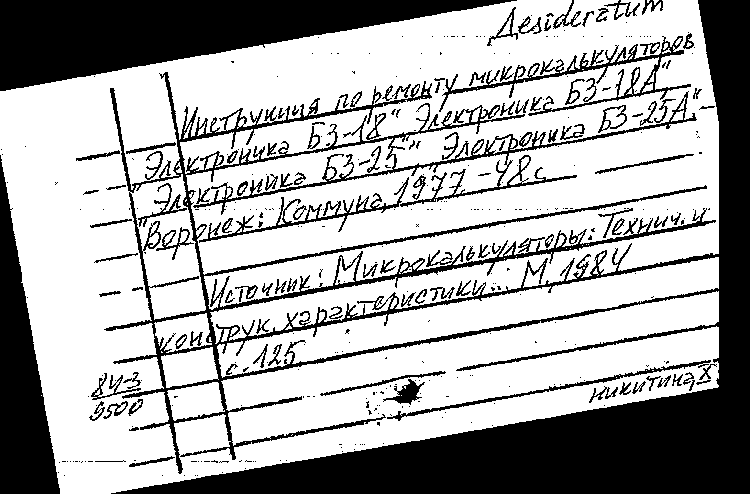 Desideratum
Инструкция по ремонту микрокалькуляторов
"Электроника Б3-18", Электроника Б3-18А",
"Электроника Б3-25", "Электроника Б3-25А".–
Воронеж: Коммуна, 1977 – 48 с.
Источник: Микрокалькуляторы: Технич. и
конструк. характеристики... М., 1984
с. 125
84-3
9500
никитина, X